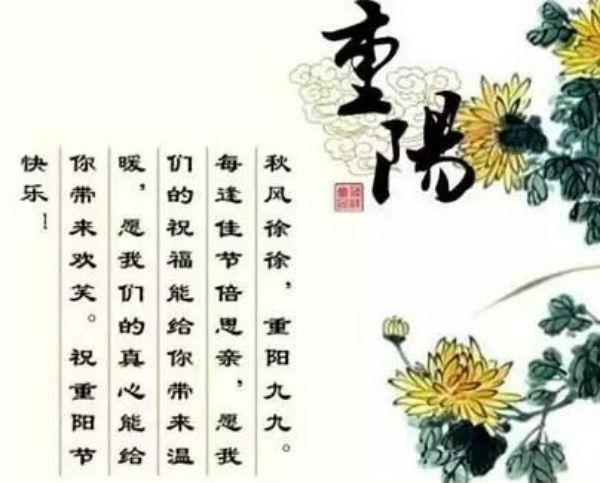 重陽
秋风徐徐，重阳九九。
每逢佳节倍思亲，愿我
们的祝福能给你带来温
暖，愿我们的真心能给
你带来欢笑。祝重阳节
快乐！